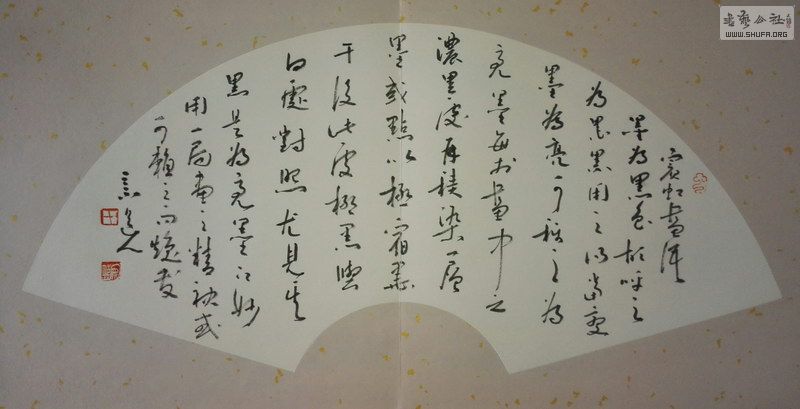 賓虹畫語
墨為黑色故呼之
為墨黑用之得當變
墨為亮可稱之為
亮墨每於畫中之
濃黑處再積染一層
墨或點以極宿墨
干後此處極黑與
白處對照尤見其
黑是為亮墨之妙
用一局畫之精神或
可賴之而煥發
書藝公社
WWW.SHUFA.ORG